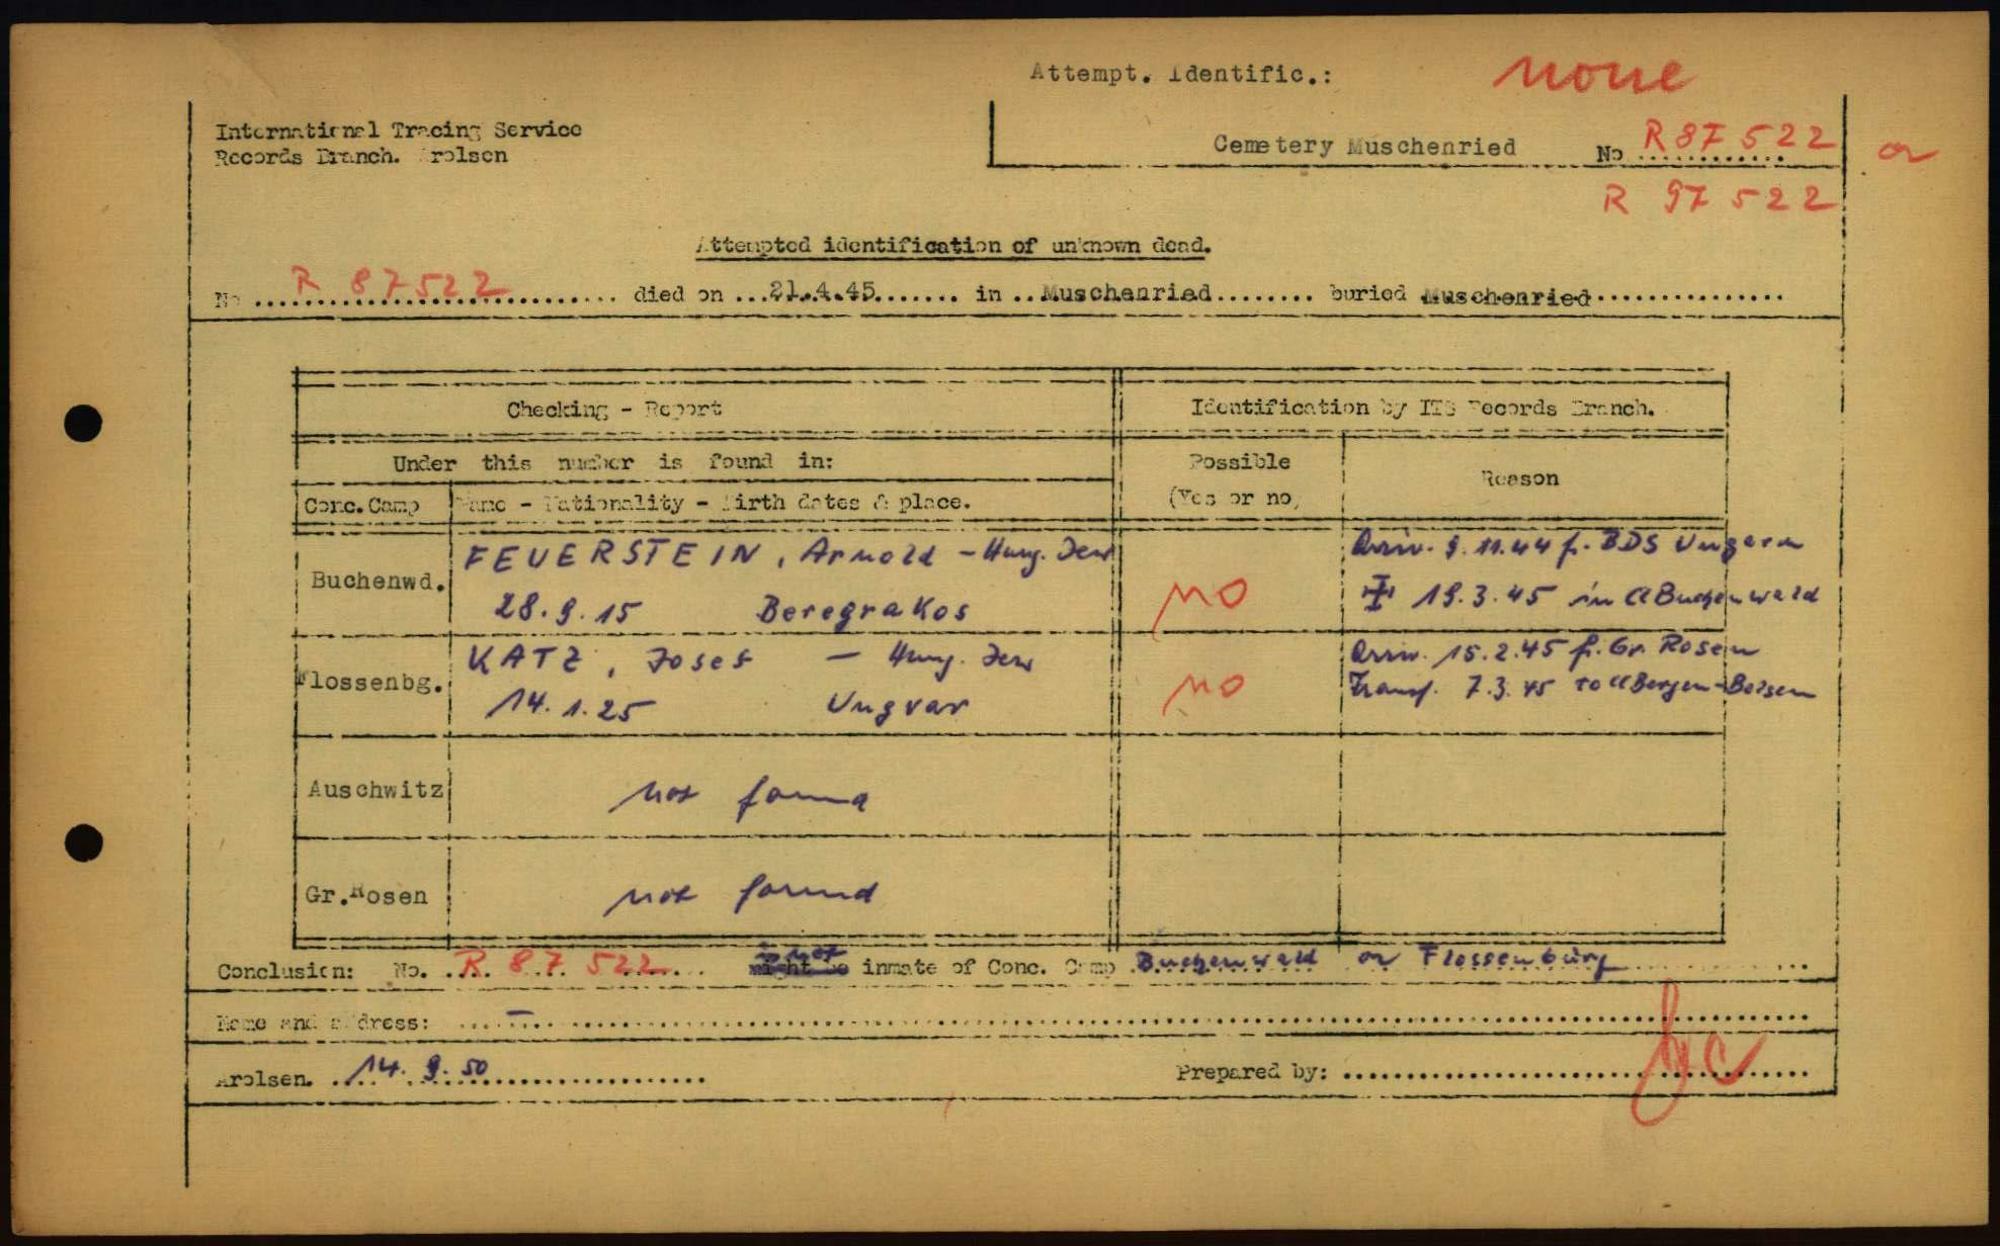 Attempt. Identific.: none
International Tracing Service
Records Branch. Arolsen
Cemetery Muschenried No R 87 522 or
R 97 522
Attempted identification of unknown dead.
No R 87522 died on 21.4.45 in Muschenried buried Muschenried
Checking - Report
Identification by ITS Records Branch.
Under this number is found in:
Possible
(Yes or no)
Reason
Conc. Camp Name - Nationality - Birth dates & place.
Buchenwd. FEUERSTEIN, Arnold - Hung. Jew
28.9.15 Beregrakos
no
Arriv. 9.11.44 f. BDS Ungarn
19.3.45 in CC Buchenwald
Flossenbg. KATZ, Josef - Hung. Jew
14.1.25 Ungvar
no
Arriv. 15.2.45 f. Gr. Rosen
Transf. 7.3.45 to CC Bergen-Belsen
Auschwitz not found
Gr. Rosen not found
Conclusion: No. R 87 522 not inmate of Conc. Camp Buchenwald or Flossenbürg
Name and address: —
Arolsen. 14.9.50 Prepared by: